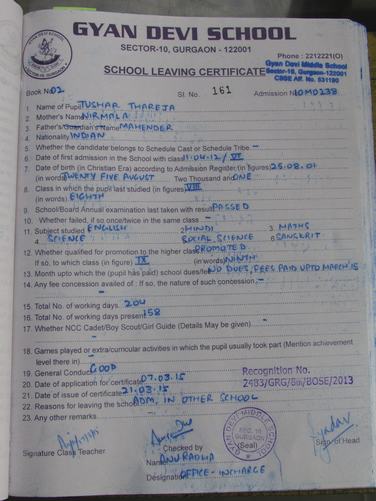 GYAN DEVI SCHOOL
SECTOR-10, GURGAON - 122001
Phone : 2212221(O)
Gyan Devi Middle School
Sector-10, Gurgaon-122001
CBSE Aff. No. 531190
SCHOOL LEAVING CERTIFICATE
Book No. 02 Sl. No. 161 Admission No MD238
1. Name of Pupil TUSHAR THAREJA
2. Mother's Name NIRMALA
3. Father's/Guardian's Name MAHENDER
4. Nationality INDIAN
5. Whether the candidate belongs to Schedule Cast or Schedule Tribe. -
6. Date of first admission in the School with class 11.04.12/ VI
7. Date of birth (in Christian Era) according to Admission Register (in figures) 25.08.01
(in words) TWENTY FIVE AUGUST Two Thousand and ONE
8. Class in which the pupil last studied (in figures) VIII
(in words) EIGHTH
9. School/Board Annual examination last taken with result PASSED
10. Whether failed, if so once/twice in the same class -
11. Subject studied ENGLISH 2 HINDI 3. MATHS
4. SCIENCE SOCIAL SCIENCE 6 SANSKRIT
12. Whether qualified for promotion to the higher class PROMOTED
If so, to which class (in figure) IX (in words) NINTH
13. Month upto which the (pupil has paid) school dues/fees NO DUES, FEES PAID UPTO MARCH'15
14. Any fee concession availed of : If so, the nature of such concession. -
15. Total No. of working days. 204
16. Total No. of working days present 158
17. Whether NCC Cadet/Boy Scout/Girl Guide (Details May be given) -
18. Games played or extra/curricular activities in which the pupil usually took part (Mention achievement
level there in) -
19. General Conduct GOOD
20. Date of application for certificate 07.03.15
21. Date of issue of certificate 21.03.15
22. Reasons for leaving the school ADM. IN OTHER SCHOOL
23. Any other remarks
Recognition No.
2483/GRG/Bs/BOSE/2013
GYAN DEVI MIDDLE SCHOOL
SEC. 10
GURGAON
(Seal)
Signature Class Teacher Checked by Sign of Head
Name ANURADHA
Designation OFFICE-INCHARGE